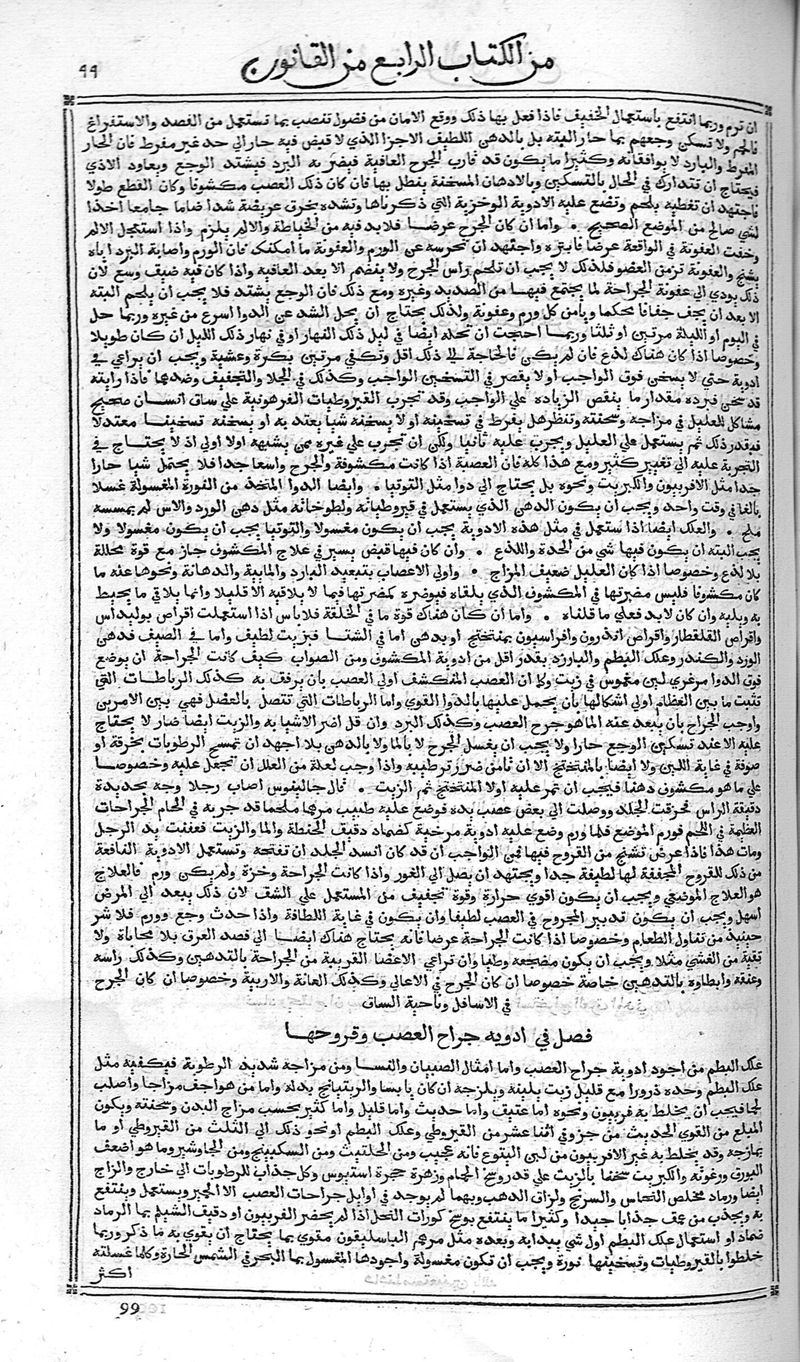 من الكتاب الرابع من القانون ٩٩
ان ترم وربما انتفع باستعمال الخفيف فاذا فعل بها ذلك ووقع الامان من فضول تنصب بما تستعمل من الفصد والاستفراغ
فالحم ولا تسكن وجعهم بما حار البته بل بالدهن اللطيف الاجزا الذي لا قبض فيه حار الي حد غير مفرط فان الحار
المفرط والبارد لا يوافقانه وكثيرا ما يكون قد قارب الجرح العافية فيضر به البرد فيشتد الوجع ويعاود الاذي
فيحتاج ان تتدارك في الحال بالتسكين وبالادهان المسخنة ينطل بها فان كان ذلك العصب مكشوفا وكان القطع طولا
فاجتهد ان تغطيه بلحم وتضع عليه الادوية الوخزية التي ذكرناها وتشده بخرق عريضة شدا ضاما جامعا اخذا
لشي صالح من الموضع الصحيح ٠ واما ان كان الجرح عرضا فلا بد فيه من الخياطة والا لم يلزم واذا استعجل الالم
وخفت العفونة في الواقعة عرضا واجتهد ان تحرسه عن الورم والعفونة ما امكنك فان الورم واصابة البرد اياه
يشنج والعفونة تزمن العضو فلذلك لا يجب ان تلحم راس الجرح ولا يفضم الا بعد العافيه واذا كان فيه ضيق وسع لان
ذلك يودي الي عفونة الجراحة لما يجتمع فيها من الصديد وغيره ومع ذلك فان الوجع يشتد فلا يجب ان يلحم البته
الا بعد ان يجف جفافا محكما ويامن كل ورم وعفونة ولذلك يحتاج ان يحل الشد عن الدوا اسرع من غيره وربما حل
في اليوم او الليلة مرتين او ثلثا وربما احتجت ان تحله ايضا في ليل ذلك النهار او في نهار ذلك الليل ان كان طويلا
وخصوصا اذا كان هناك لذع فان لم يكن فالحاجة الي ذلك اقل وتكفي مرتين بكرة وعشية ويجب ان يراعي في
ادوية حتي لا يسخن فوق الواجب اولا يقصر في التسخين الواجب وكذلك في الجلا والتجفيف وضدهما فاذا رايته
قد سخن فبرده مقدار ما ينقص الزياده علي الواجب وقد تجرب القيروطيات الفرفيونية علي ساق انسان صحيح
مشاكل للعليل في مزاجه وسحنته وتنظر هل يفرط في تسخينه او لا يسخنه شيا يعتد به او يسخنه تسخينا معتدلا
فيقدر ذلك ثم يستعمل علي العليل ويجرب عليه ثانيا ولكن ان تجرب علي غيره ممن يشبهه اولا اولي اذ لا يحتاج في
التجربة عليه الي تغيير كثير ومع هذا كله فان العصبة اذا كانت مكشوفة والجرح واسعا جدا فلا يحتمل شيا حارا
جدا مثل الافربيون والكبريت ونحوه بل يحتاج الي دوا مثل التوتيا ٠ وايضا الدوا المتخذ من النورة المغسولة غسلا
بالغا في وقت واحد ويجب ان يكون الدهن الذي يستعمل في قيروطياته ولطوخاته مثل دهن الورد والاس لم يمسسه
ملح ٠ والعلك ايضا اذا ستعمل في مثل هذه الادوية يجب ان يكون مغسولا والتوتيا يجب ان يكون مغسولا ولا
يجب البته ان يكون فيها شي من الحدة واللذع ٠ وان كان فيها قبض يسير في علاج المكشوف جاز مع قوة محللة
بلا لذع وخصوصا اذا كان العليل ضعيف المزاج ٠ واولي الاعصاب بتبعيد البارد والمايية والدهانة ونحوها عنه ما
كان مكشوفا فليس مضرتها في المكشوف الذي يلقاه فيوضره كمضرتها فيما لا يلاقيه الا قليلا وانما يلاقي ما يحيط
به ويليه وان كان لا بد فعلي ما قلناه ٠ واما ان كان هناك قوة ما في الخلقة فلا باس اذا استعملت اقراص بوليداس
واقراص القلقطار واقراص اندرون وافراسيون بمنختج او بدهن اما في الشتا فبزيت لطيف واما في الصيف فدهن
الورد والكندر وعلك البطم والبارزد بقدر اقل من ادوية المكشوف ومن الصواب كيف كانت الجراحة ان يوضع
فوق الدوا مرغزي لين مغموس في زيت وكما ان العصب المنكشف اولي العصب بان يرفق به كذلك الرباطات التي
تثبت ما بين العظام اولي اشكالها بان يحمل عليها بالدوا القوي واما الرباطات التي تتصل بالعضل فهي بين الامرين
واوجب الجراح بان يبعد عنه الما هو جرح العصب وكذلك البرد وان قل اضر الاشيا به والزيت ايضا ضار لا يحتاج
عليه الا عند تسكين الوجع حارا ولا يجب ان يغسل الجرح لا بالما ولا بالدهن بلا اجهد ان تمسح الرطوبات بخرقة او
صوفة في غاية اللين ولا ايضا بالمنختج الا ان تامن ضرر ترطيبه واذا وجب لعلة من العلل ان تجعل عليه وخصوصا
علي ما هو مكشوف دهنا فيجب ان تمر عليه اولا المنختج ثم الزيت ٠ قال جالينوس اصاب رجلا وجه بحديدة
دقيقة الراس تخرقت الجلد ووصلت الي بعض عصب يده فوضع عليه طبيب مرهما ملحما قد جربه في الحام الجراحات
العظيمة في اللحم فورم الموضع فلما ورم وضع عليه ادوية مرخية كضماد دقيق الحنطة والما والزيت فعفنت يد الرجل
ومات هذا فاذا عرض تشنج من القروح فيها فمن الواجب ان قد كان انسد الجلد ان تفتحه وتستعمل الادوية النافعة
من ذلك للقروح المجففة لها لطيفة جدا ويجتهد ان يصل الي الغور واذا كانت الجراحة وخزة ولم يكن ورم فالعلاج
هو العلاج الموضعي ويجب ان يكون اقوي حرارة وقوة تجفيف من المستعمل علي الشق لان ذلك يبعد الي المرض
اسهل ويجب ان يكون تدبير المجروح في العصب لطيفا وان يكون في غاية اللطافة واذا حدث وجع وورم فلا شر
حينيد من تناول الطعام وخصوصا اذا كانت الجراحة عرضا فانه يحتاج هناك ايضا الي فصد العرق بلا محاباة ولا
تقية من الغشي مثلا ويجب ان يكون مضجعه وطيا وان تراعي الاعضا القريبة من الجراحة بالتدهين وكذلك راسه
وعنقه وابطاوه بالتدهين خاصة خصوصا ان كان الجرح في الاعالي وكذلك العانة والاربية وخصوصا ان كان الجرح
في الاسافل وناحية الساق
فصل في ادويه جراح العصب وقروحها
علك البطم من اجود ادوية جراح العصب واما امثال الصبيان والنسا ومن مزاجه شديد الرطوبة فيكفيه مثل
علك البطم وحده ذرورا مع قليل زيت يلينه ويلزجه ان كان يابسا والريتيانج بدله واما من هو اجف مزاجا واصلب
لحما فيجب ان يخلط به فربيون ونحوه اما عتيق واما حديث واما قليل واما كثير بحسب مزاج البدن وسحنته ويكون
المبلغ من القوي الحديث من جزو في اثنا عشر من القيروطي وعلك البطم او نحو ذلك الي الثلث من القيروطي او ما
يمازجه وقد يخلط به غير الافربيون من لبن اليتوع فانه عجيب ومن الحلتيث ومن السكبينج ومن الجاوشير وما هو اضعف
البورق ورغوته والكبريت سحقا بالزيت علي قدر وسخ الحمام وزهرة حجرة اسيوس وكل جذاب للرطوبات الي خارج والزاج
ايضا ورماد مخلص النحاس والسرنج ولزاق الذهب وبهما لم يوجد في اوايل جراحات العصب الا الخير ويستعمل وينتفع
به ويجذب من عمق جذابا جيدا وكثيرا ما ينتفع بوسخ كورات النحل اذا لم يحضر الفربيون او دقيق الشيلم بما الرماد
ضماد او استعمال علك البطم اول شي يبدايه وبعده مثل مرهم الباسليقون مقوي بما يحتاج ان يقوي به ما ذكر وربما
خلطوا بالقيروطيات وتسخينها نورة ويجب ان تكون مغسولة واجودها المغسول بما البحر في الشمس الحارة وكلما غسلته
اكثر
99